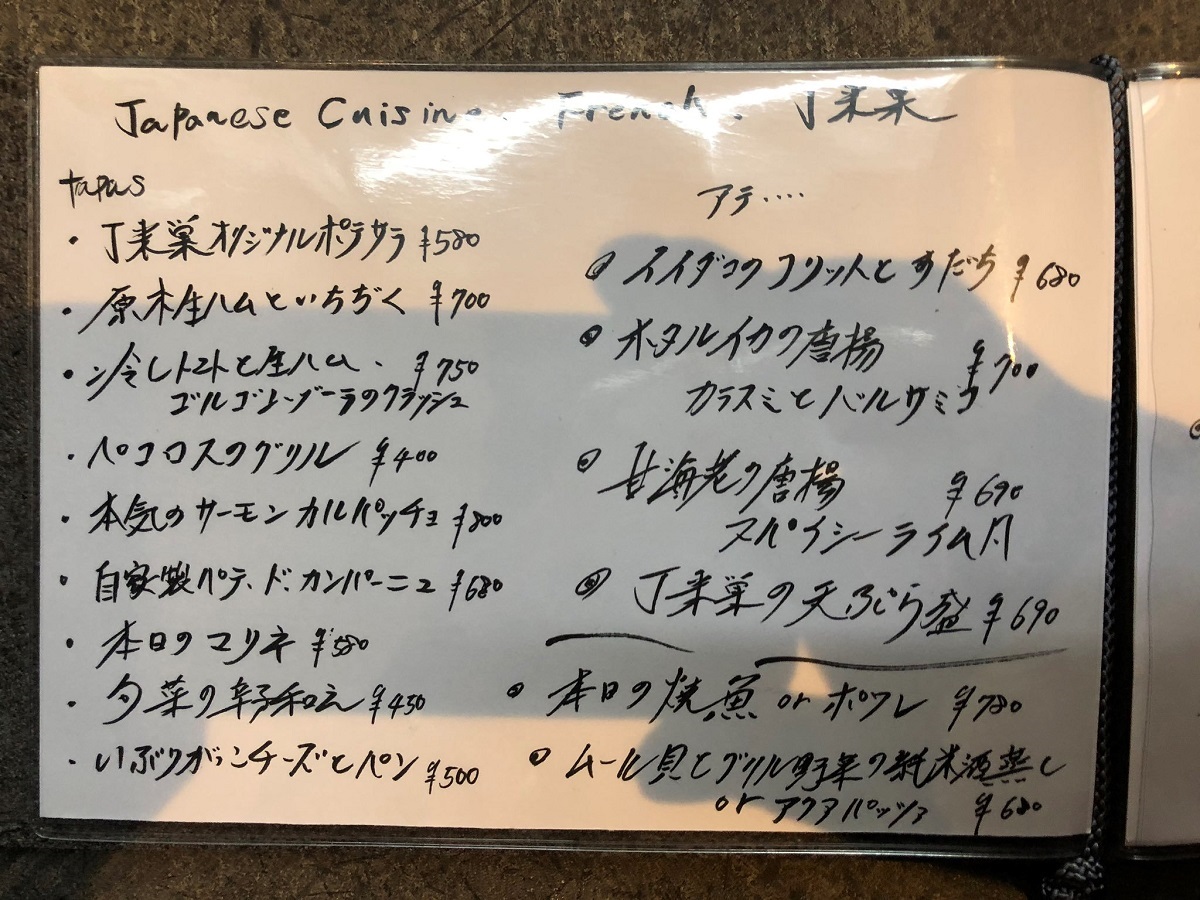 Japanese Cuisine. French. 丁来巣
tapas
・丁来巣オリジナルポテサラ ¥580
・原木生ハムといちぢく ¥700
・冷しトマトと生ハム、 ¥750
ゴルゴンゾーラのクラッシュ
・ペコロスのグリル ¥400
・本気のサーモンカルパッチョ ¥800
・自家製パテ、ド、カンパーニュ ¥680
・本日のマリネ ¥580
・旬菜の辛子和え ¥450
・いぶりがっこチーズとパン ¥500
アテ‥‥
イイダコのフリットとすだち ¥680
ホタルイカの唐揚 ¥700
カラスミとバルサミコ
甘海老の唐揚 ¥690
スパイシーライム
丁来巣の天ぷら盛 ¥690
本日の焼魚 or ポワレ ¥780
ムール貝とグリル野菜の純米酒蒸し
or アクアパッツァ ¥680